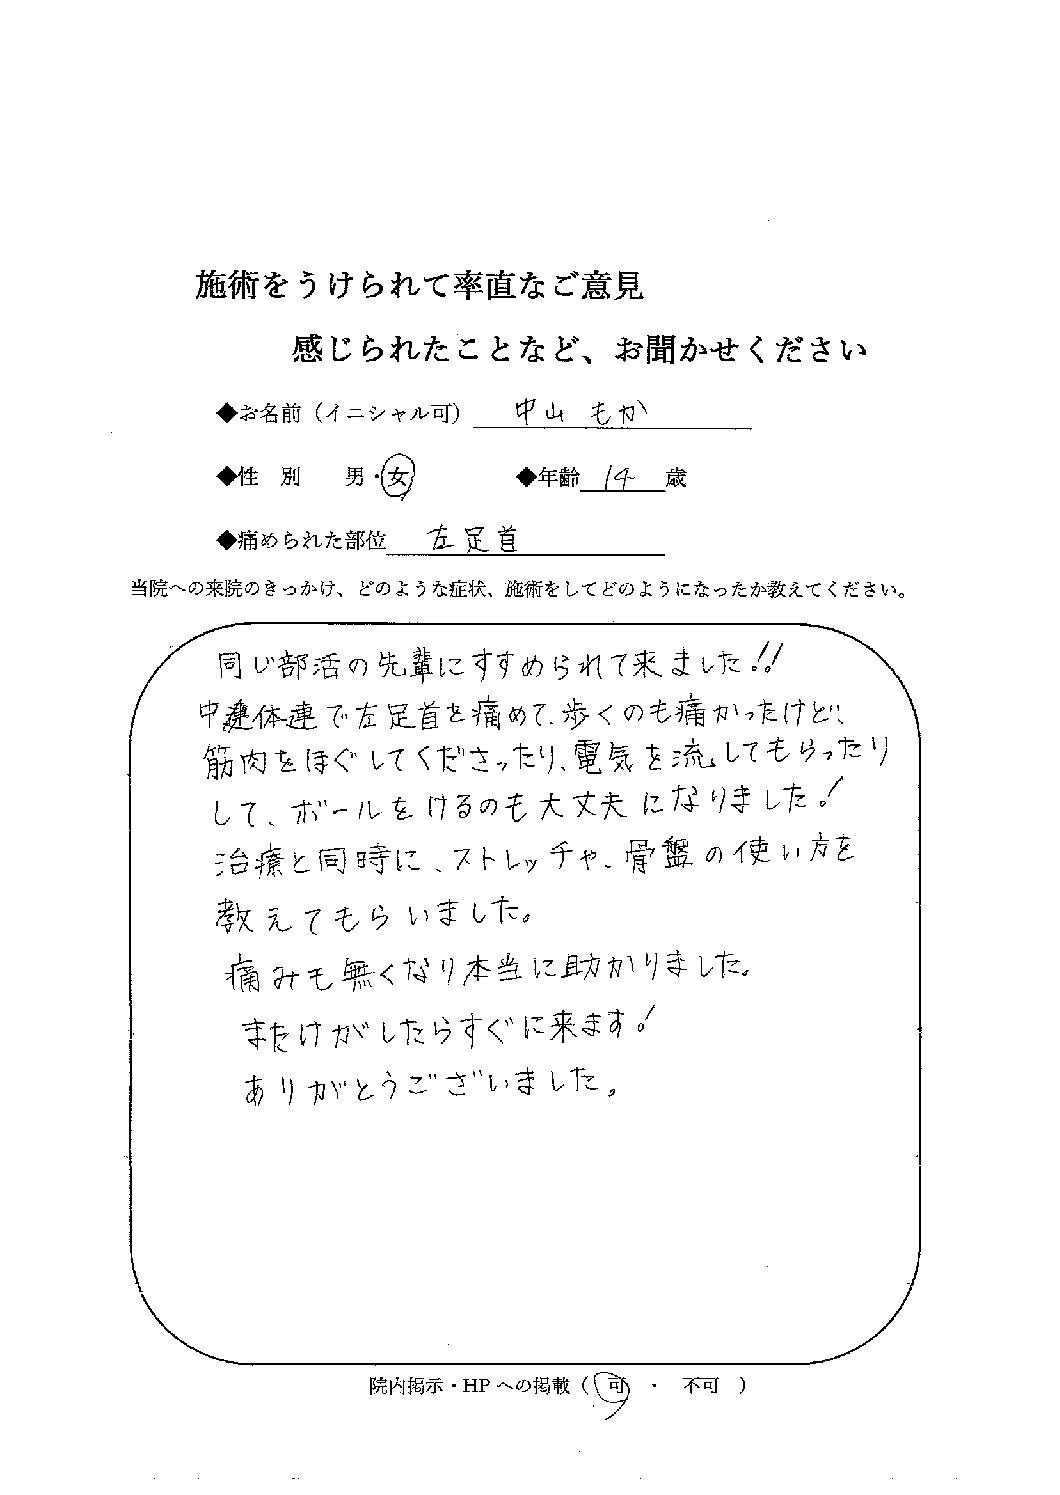 施術をうけられて率直なご意見
感じられたことなど、お聞かせください
◆お名前(イニシャル可) 中山 もか
◆性 別 男・女 ◆年齢 14 歳
◆痛められた部位 左足首
当院への来院のきっかけ、どのような症状、施術をしてどのようになったか教えてください。
同じ部活の先輩にすすめられて来ました!!
中連体連で左足首を痛めて、歩くのも痛かったけど、
筋肉をほぐしてくださったり、電気を流してもらったり
して、ボールをけるのも大丈夫になりました!
治療と同時に、ストレッチや、骨盤の使い方を
教えてもらいました。
痛みも無くなり本当に助かりました。
またけがしたらすぐに来ます!
ありがとうございました。
院内掲示・HPへの掲載( 可 ・ 不可 )